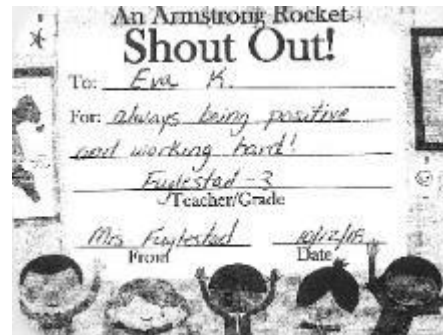 An Armstrong Rocket
Shout Out!
To: Eva K.
For: always being positive
and working hard!
Fuglestad - 3
Teacher/Grade
Mrs Fuglestad 10/12/05
From Date